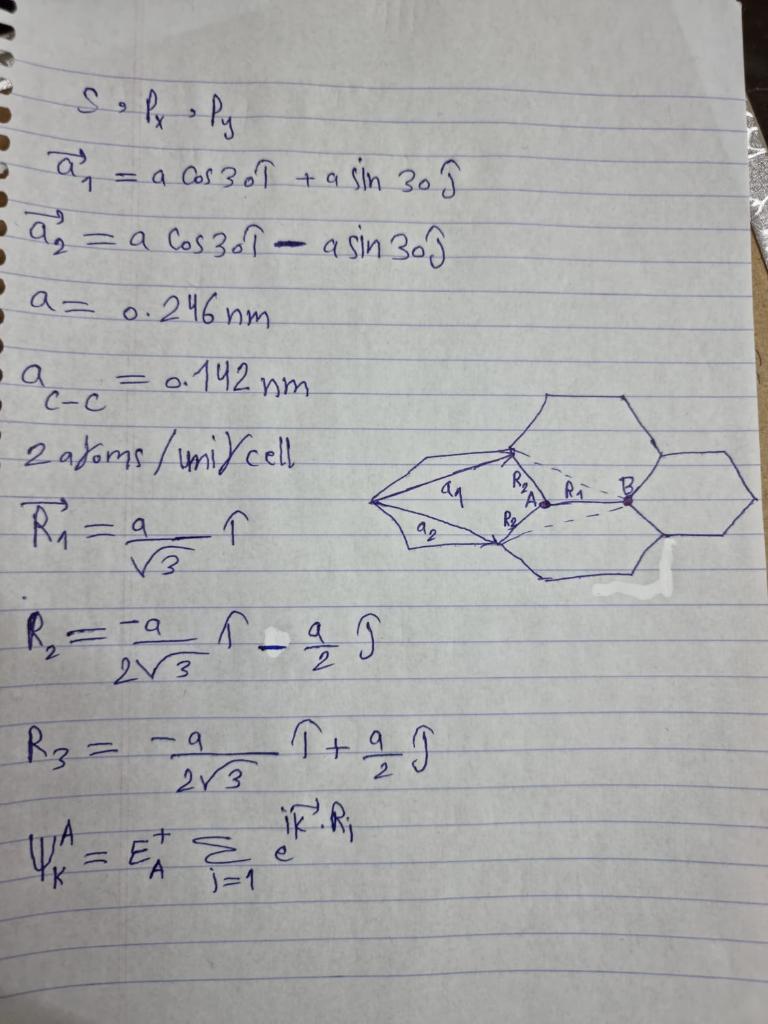 S, Px, Py
a⃗₁ = a cos30 î + a sin 30 ĵ
a⃗₂ = a cos30 î − a sin 30 ĵ
a = 0.246 nm
a_C-C = 0.142 nm
2 atoms/unit cell
R⃗₁ = a/√3 î
R₂ = -a/2√3 î − a/2 ĵ
R₃ = -a/2√3 î + a/2 ĵ
Ψ_K^A = E_A^+ Σ_{j=1} e^{ik⃗·R_j}
a₁
a₂
R₂
A
R₁
B
R₂